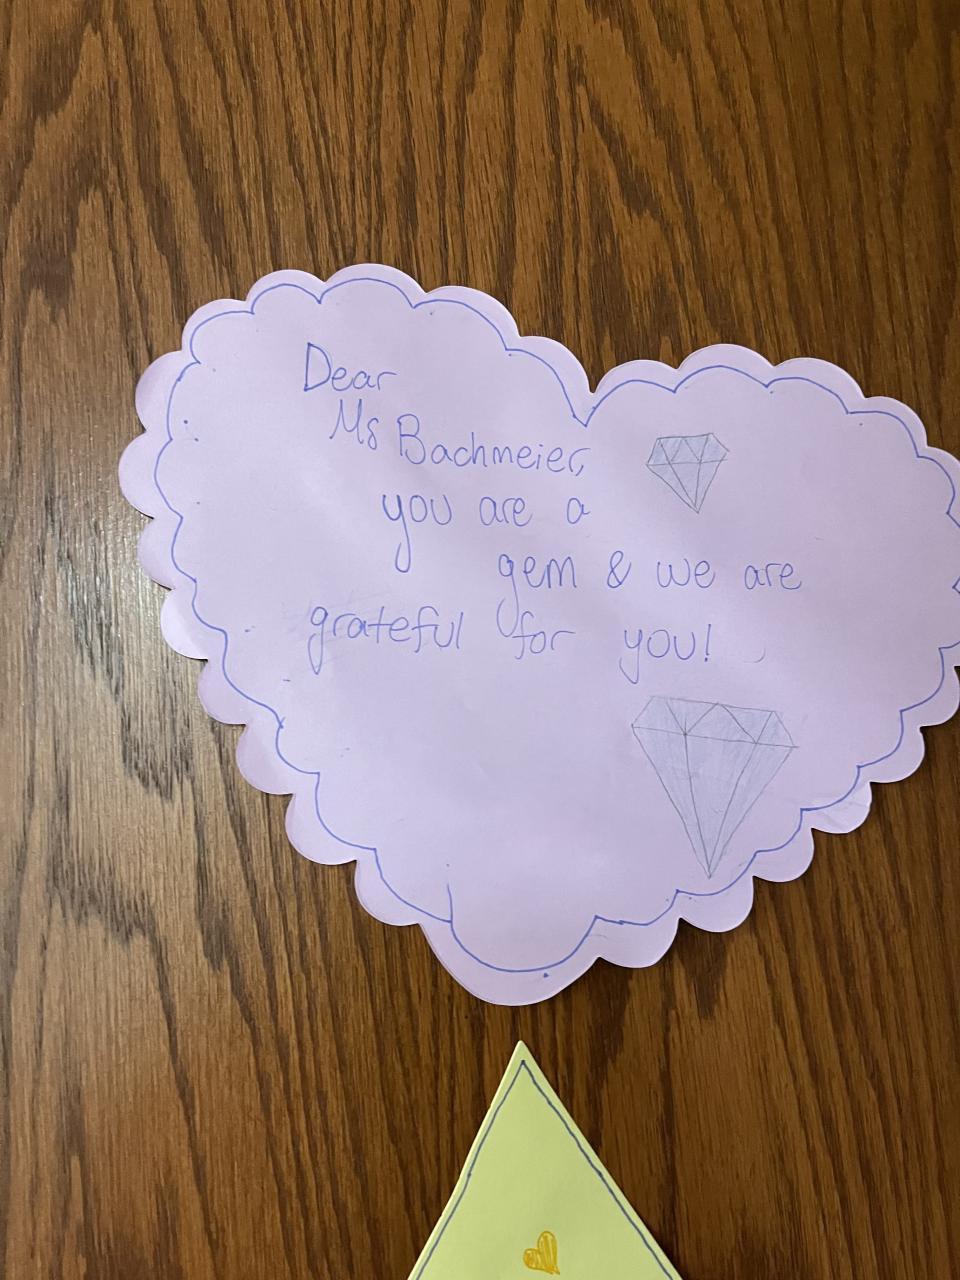 Dear
Ms Bachmeier,
you are a
gem & we are
grateful for you!